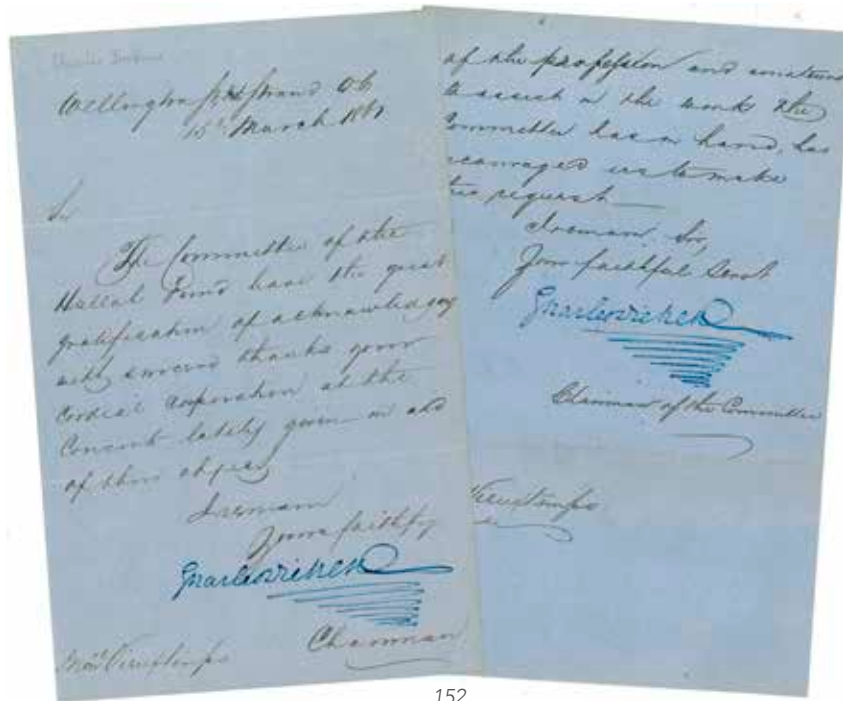 Charles Dickens
Wellington Street Strand
15th March 1861
Sir
The Committee of the
Hullah Fund have the great
gratification of acknowledging
with sincere thanks your
cordial cooperation at the
Concert lately given in aid
of this object
I remain
Yours faithfy
Charles Dickens
Chairman
Monr Vieuxtemps
of the profession and amateurs
to assist in the work the
Committee has in hand, has
encouraged us to make
this request
I remain Sir,
Your faithful Servt
Charles Dickens
Chairman of the Committee
Vieuxtemps
152